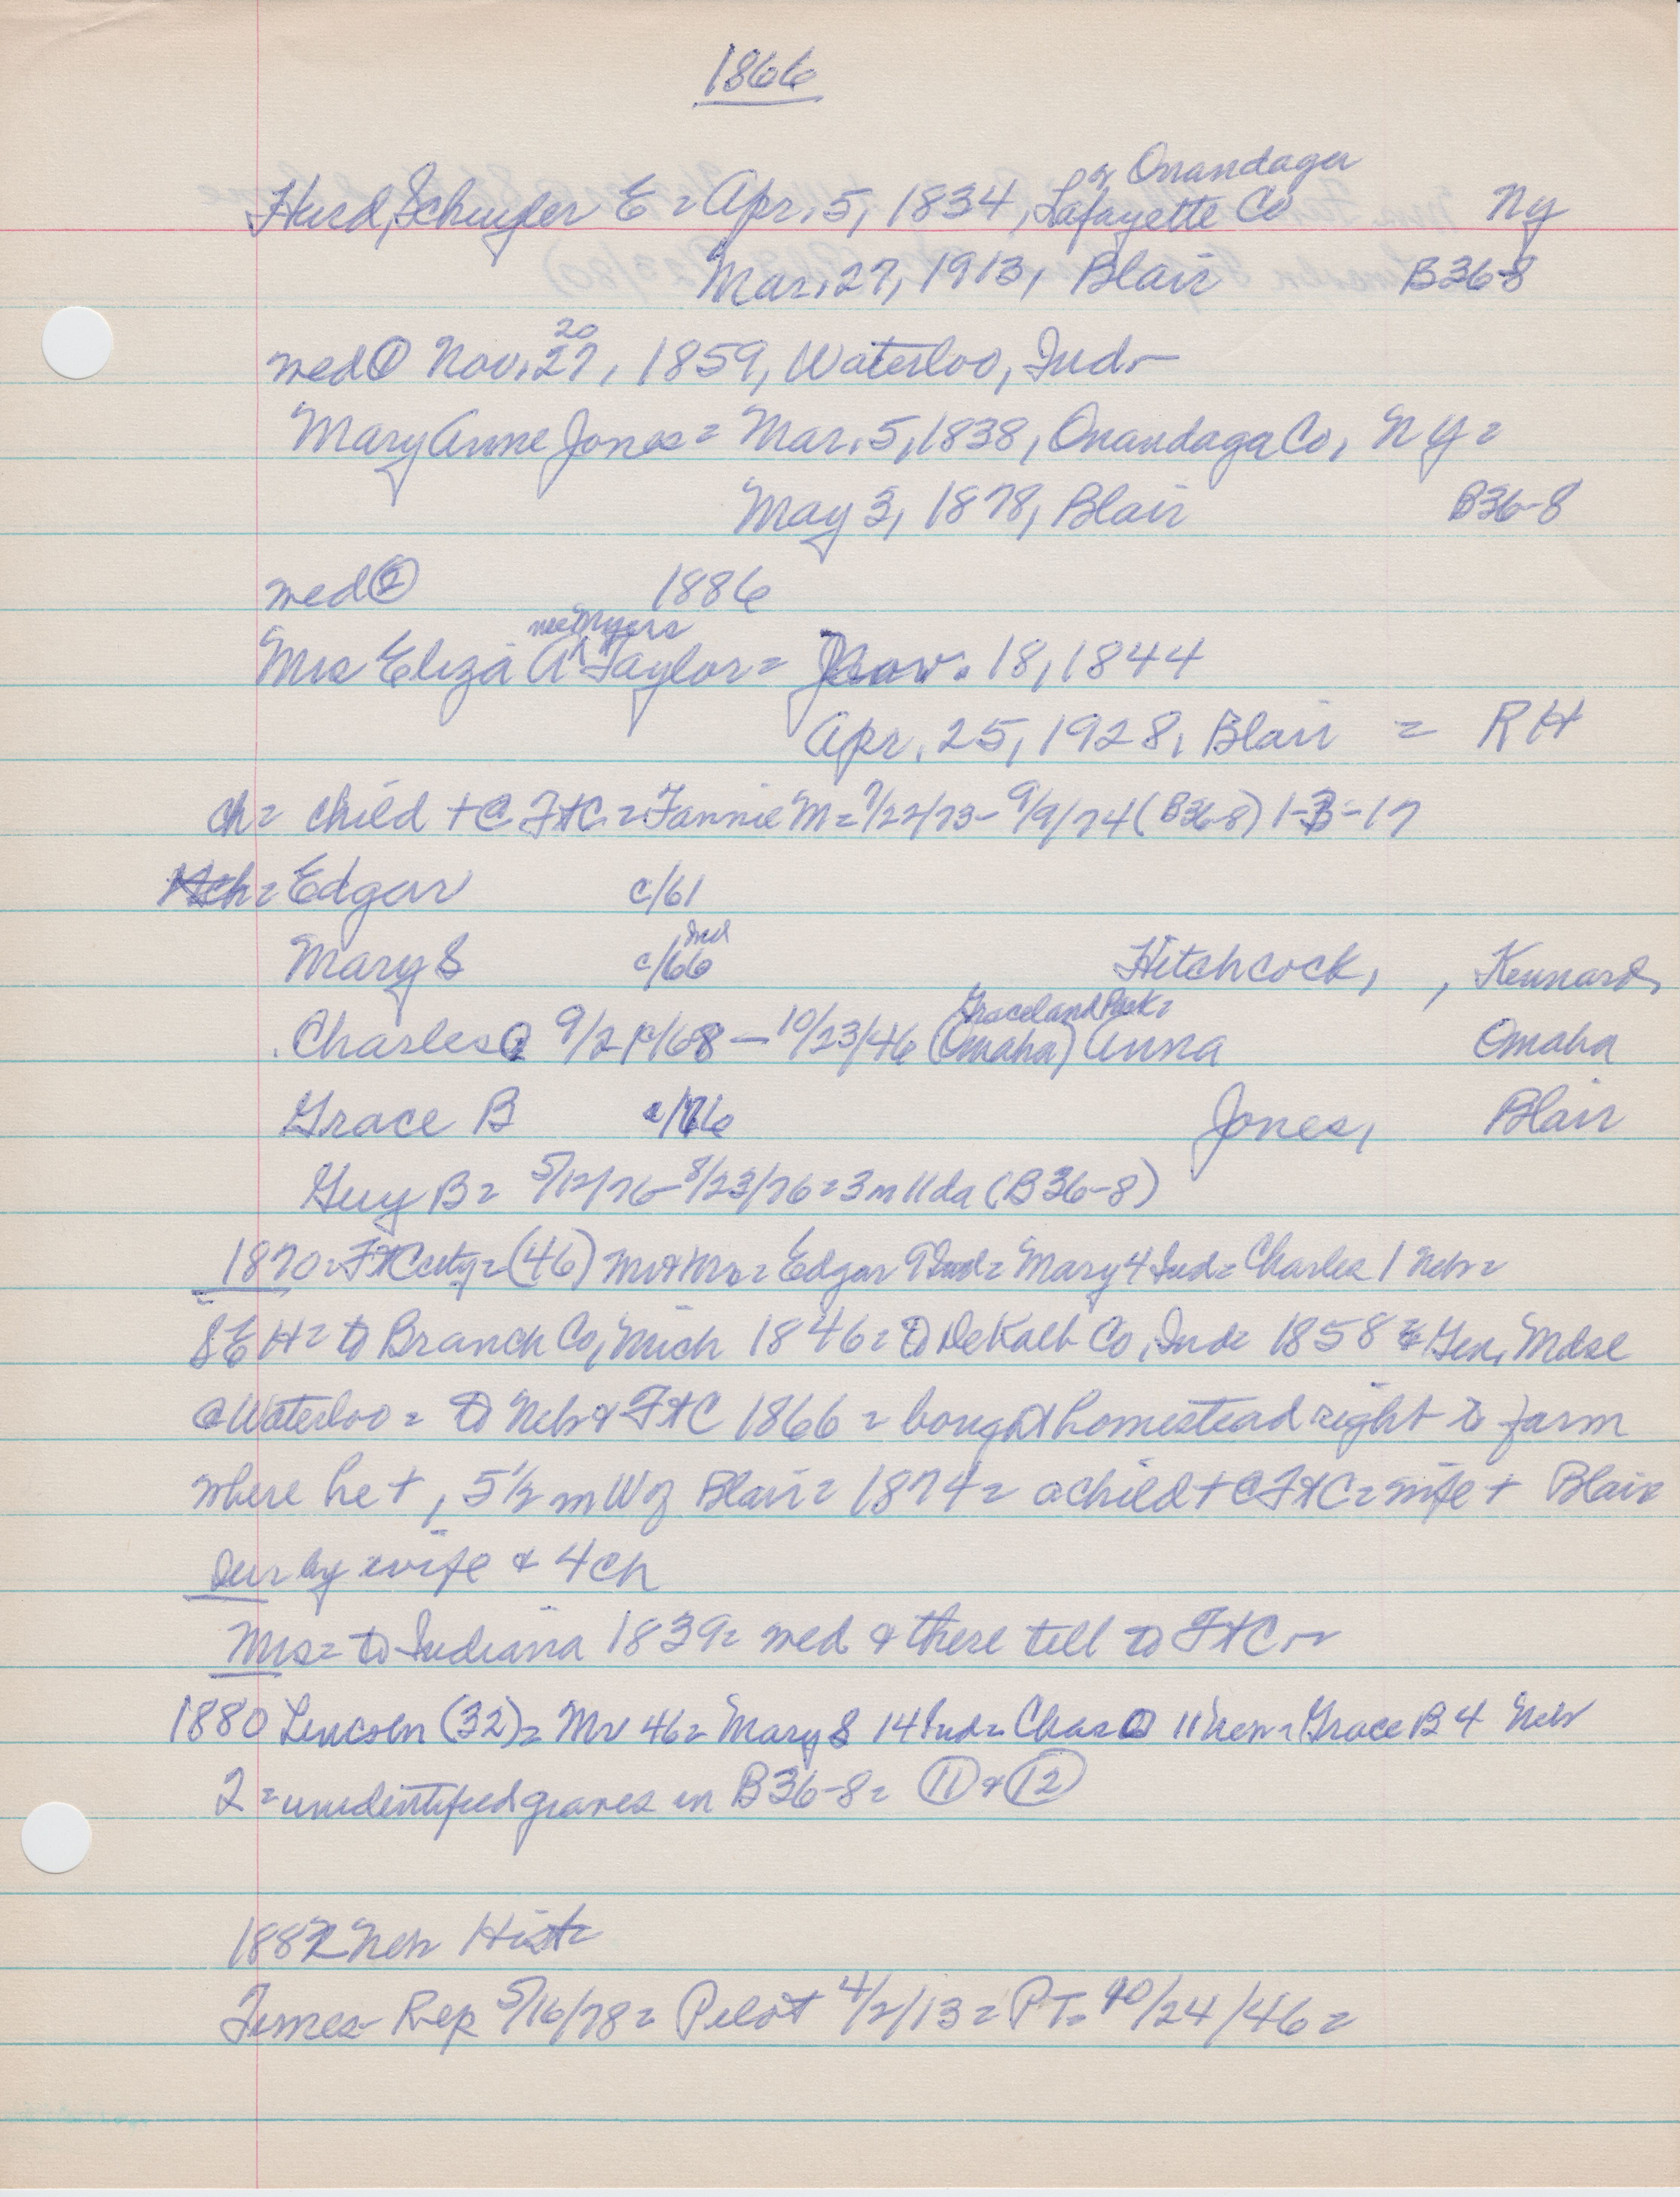 1866
or Onandaga
Hurd, Schuyler E = Apr. 5, 1834, Lafayette Co Ny
Mar. 27, 1913, Blair B36-8
20
med ① Nov. 27, 1859, Waterloo, Ind.
Mary Anne Jones = Mar. 5, 1838, Onandaga Co, NY =
May 3, 1878, Blair B36-8
med ② 1886
nee Myers
Mrs Eliza A Taylor = Nov. 18, 1844
Apr. 25, 1928, Blair = RH
ch = child + @ Ft C = Fannie M = 7/22/73 - 9/9/74 (B36-8) 1-3-17
ch = Edgar c/61
Ind
Mary S c/66 Hitchcock, , Kennard,
Graceland Park =
Charles O 9/21/68 — 10/23/46 (Omaha) Anna Omaha
Grace B c/76 Jones, Blair
Guy B = 5/12/76 - 8/23/76 = 3 m 11 da (B36-8)
1870 = Ft C city = (46) Mr & Mrs = Edgar 9 Ind = Mary 4 Ind = Charles 1 Neb =
S E H = to Branch Co, Mich 1846 = to DeKalb Co, Ind = 1858 = Gen. Mdse
@ Waterloo = to Neb & Ft C 1866 = bought homestead right to farm
where he +, 5½ m W of Blair = 1874 = a child + @ Ft C = wife + Blair
Sur by wife & 4 ch
Mrs = to Indiana 1839 = med & there till to Ft C
1880 Lincoln (32) = Mr 46 = Mary S 14 Ind = Chas O 11 Neb = Grace B 4 Neb
2 = unidentified graves in B36-8 = ⑪ & ⑫
1882 Neb Hist =
Times - Rep 5/16/78 = Pilot 4/2/13 = PT = 10/24/46 =